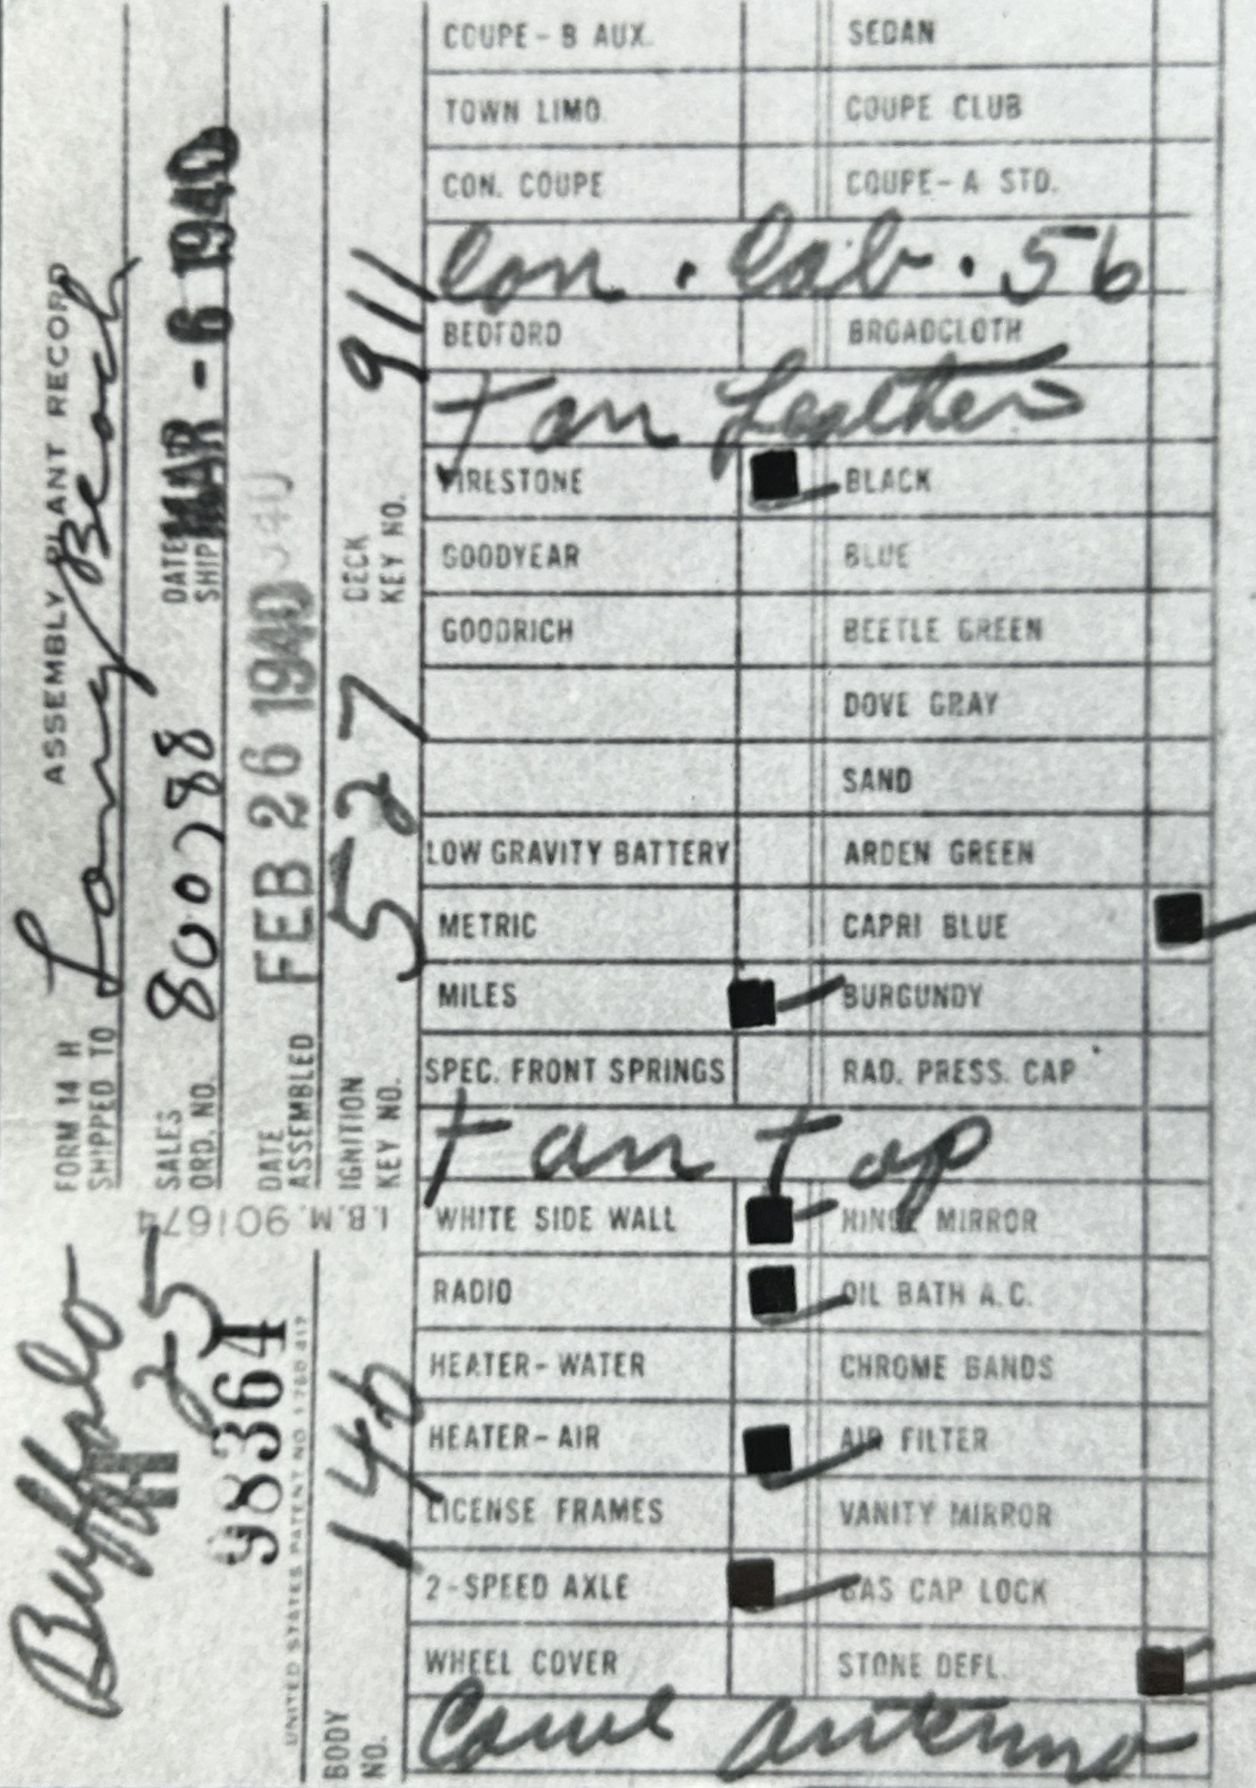 FORM 14 H ASSEMBLY PLANT RECORD
SHIPPED TO Long Beach
SALES ORD. NO. 800788 DATE SHIP MAR - 6 1940
DATE ASSEMBLED FEB 26 1940
IGNITION KEY NO. 527 DECK KEY NO. 911
I.B.M. 901674
Buffalo
H 25
98364
UNITED STATES PATENT NO. 1 780 417
BODY NO. 146
COUPE - B AUX. SEDAN
TOWN LIMO. COUPE CLUB
CON. COUPE COUPE - A STD.
Con. Cab. 56
BEDFORD BROADCLOTH
Tan Leather
FIRESTONE BLACK
GOODYEAR BLUE
GOODRICH BEETLE GREEN
DOVE GRAY
SAND
LOW GRAVITY BATTERY ARDEN GREEN
METRIC CAPRI BLUE
MILES BURGUNDY
SPEC. FRONT SPRINGS RAD. PRESS. CAP
Tan Top
WHITE SIDE WALL HINGE MIRROR
RADIO OIL BATH A.C.
HEATER - WATER CHROME BANDS
HEATER - AIR AIR FILTER
LICENSE FRAMES VANITY MIRROR
2 - SPEED AXLE GAS CAP LOCK
WHEEL COVER STONE DEFL.
Cowl antenna